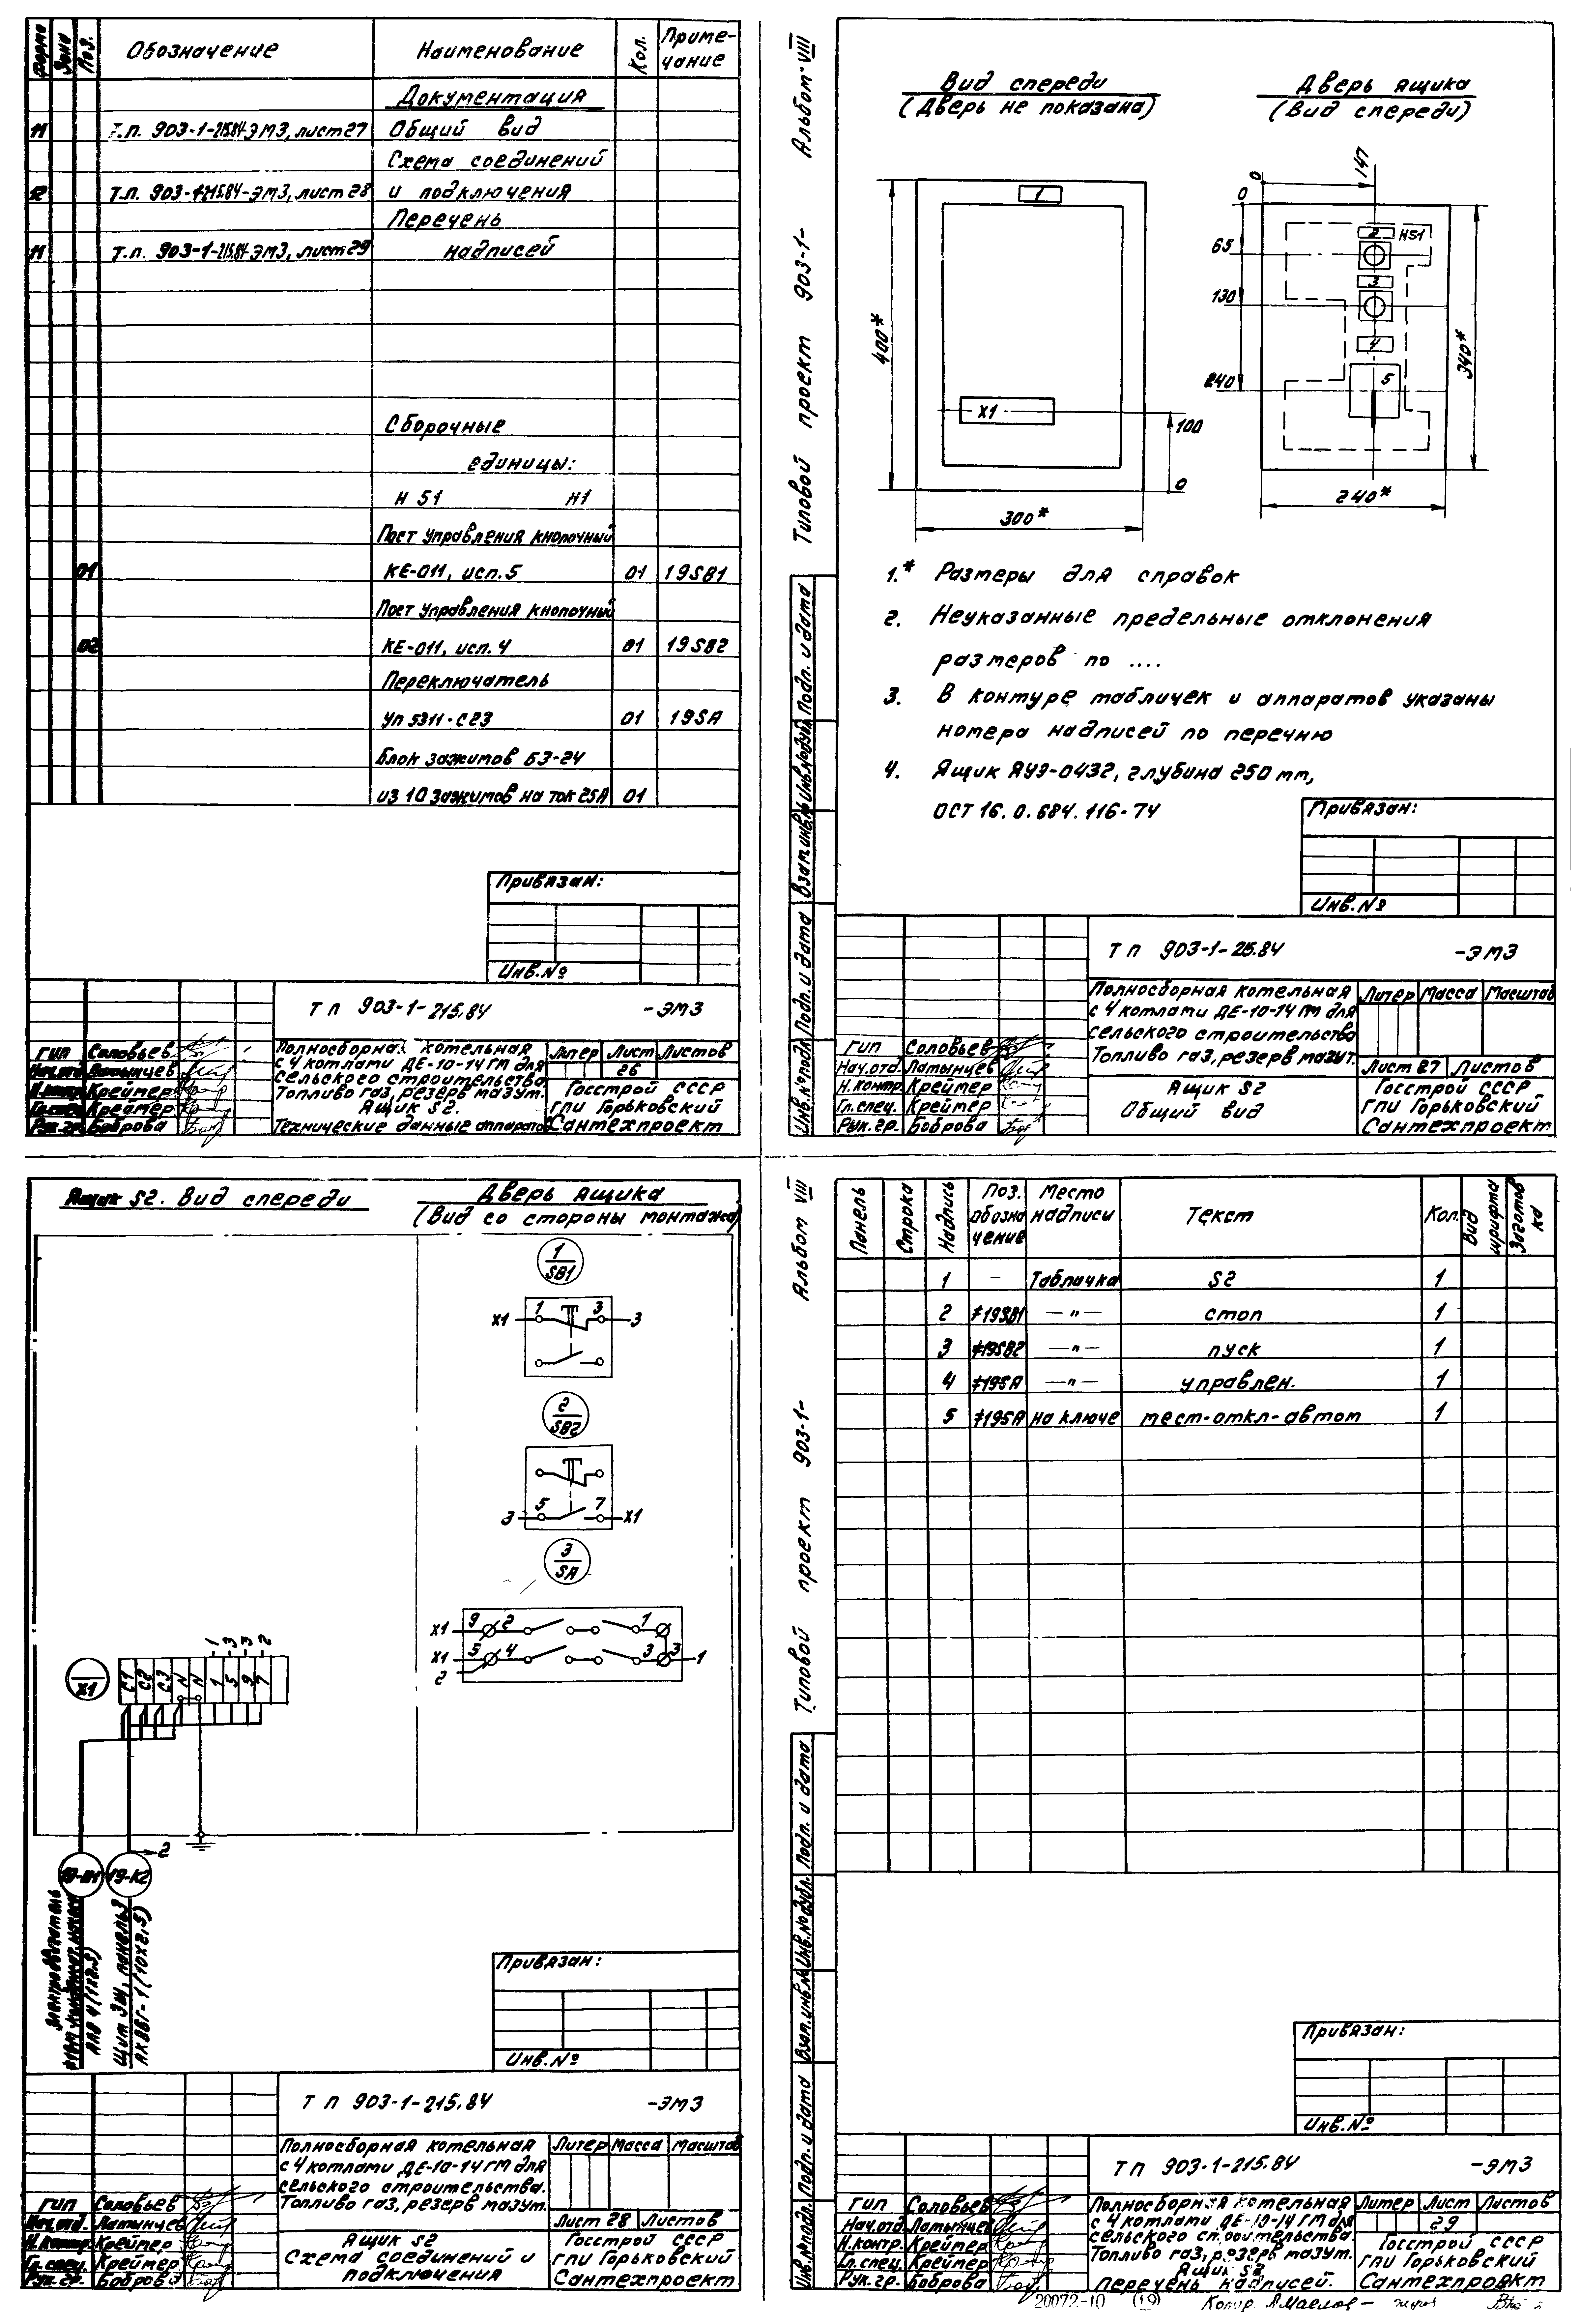 Форма Зона Поз. Обозначение Наименование Кол. Приме-
чание
Документация
11 Т.п. 903-1-215.84-ЭМ3, лист 27 Общий вид
Схема соединений
12 Т.п. 903-1-215.84-ЭМ3, лист 28 и подключения
Перечень
11 Т.п. 903-1-215.84-ЭМ3, лист 29 надписей
Сборочные
единицы:
Н 51 Н1
Пост управления кнопочный
01 КЕ-011, исп. 5 01 19SB1
Пост управления кнопочный
02 КЕ-011, исп. 4 01 19SB2
Переключатель
УП 5311-С23 01 19SA
Блок зажимов БЗ-24
из 10 зажимов на ток 25А 01
Привязан:
Инв.№
Т П 903-1-215.84 -ЭМ3
ГИП Соловьев
Нач.отд. Латынцев
Н.контр. Крейтер
Гл.спец. Крейтер
Рук.гр. Боброва
Полносборная котельная
с 4 котлами ДЕ-10-14ГМ для
сельского строительства
Топливо газ, резерв мазут.
Ящик S2.
Технические данные аппаратов
Литер Лист Листов
26
Госстрой СССР
ГПИ Горьковский
Сантехпроект
Альбом VIII
Типовой проект 903-1-
Вид спереди
(Дверь не показана)
Дверь ящика
(Вид спереди)
1
400*
X1
100
0
300*
0
147
0
65
130
240
2 HS1
3
4
5
340*
240*
1.* Размеры для справок
2. Неуказанные предельные отклонения
размеров по ....
3. В контуре табличек и аппаратов указаны
номера надписей по перечню
4. Ящик ЯУЭ-0432, глубина 250 mm,
ОСТ 16.0.684.116-74
Подп. и дата
Взам.инв.№
Инв.№дубл.
Подп. и дата
Инв.№подл.
Привязан:
Инв.№
Т П 903-1-25.84 -ЭМ3
ГИП Соловьев
Нач.отд. Латынцев
Н.контр. Крейтер
Гл.спец. Крейтер
Рук.гр. Боброва
Полносборная котельная
с 4 котлами ДЕ-10-14 ГМ для
сельского строительства
Топливо газ, резерв мазут.
Ящик S2
Общий вид
Литер Масса Масштаб
Лист 27 Листов
Госстрой СССР
ГПИ Горьковский
Сантехпроект
Ящик S2. Вид спереди
Дверь ящика
(Вид со стороны монтажа)
1
SB1
X1 1 3 3
2
SB2
3 5 7 X1
3
SA
X1 9 2 1
X1 5 4 3 3 1
2
1 3 3 2
X1 C1 C2 C3 N N 1 5 9 7
2
19-Н1 19-К2
Электродвигатель
АПВ 4(1х2,5)
Щит ЭЩ, панель 3
АКВВГ-1(10х2,5)
Привязан:
Инв.№
Т П 903-1-215.84 -ЭМ3
ГИП Соловьев
Нач.отд. Латынцев
Н.контр. Крейтер
Гл.спец. Крейтер
Рук.гр. Боброва
Полносборная котельная
с 4 котлами ДЕ-10-14ГМ для
сельского строительства.
Топливо газ, резерв мазут.
Ящик S2
Схема соединений и
подключения
Литер Масса Масштаб
Лист 28 Листов
Госстрой СССР
ГПИ Горьковский
Сантехпроект
Альбом VIII
Типовой проект 903-1-
Панель Строка Надпись Поз. обозначение Место надписи Текст Кол. Вид шрифта Заготовка
1 - Табличка S2 1
2 ≠19SB1 —"— стоп 1
3 ≠19SB2 —"— пуск 1
4 ≠19SA —"— управлен. 1
5 ≠19SA на ключе мест-откл-автом 1
Подп. и дата
Инв.№дубл.
Взам.инв.№
Подп. и дата
Инв.№подл.
Привязан:
Инв.№
Т П 903-1-215.84 -ЭМ3
ГИП Соловьев
Нач.отд. Латынцев
Н.контр. Крейтер
Гл.спец. Крейтер
Рук.гр. Боброва
Полносборная котельная
с 4 котлами ДЕ-10-14 ГМ для
сельского строительства
Топливо газ, резерв мазут.
Ящик S2
Перечень надписей.
Литер Лист Листов
29
Госстрой СССР
ГПИ Горьковский
Сантехпроект
20072-10 (19) Копир.